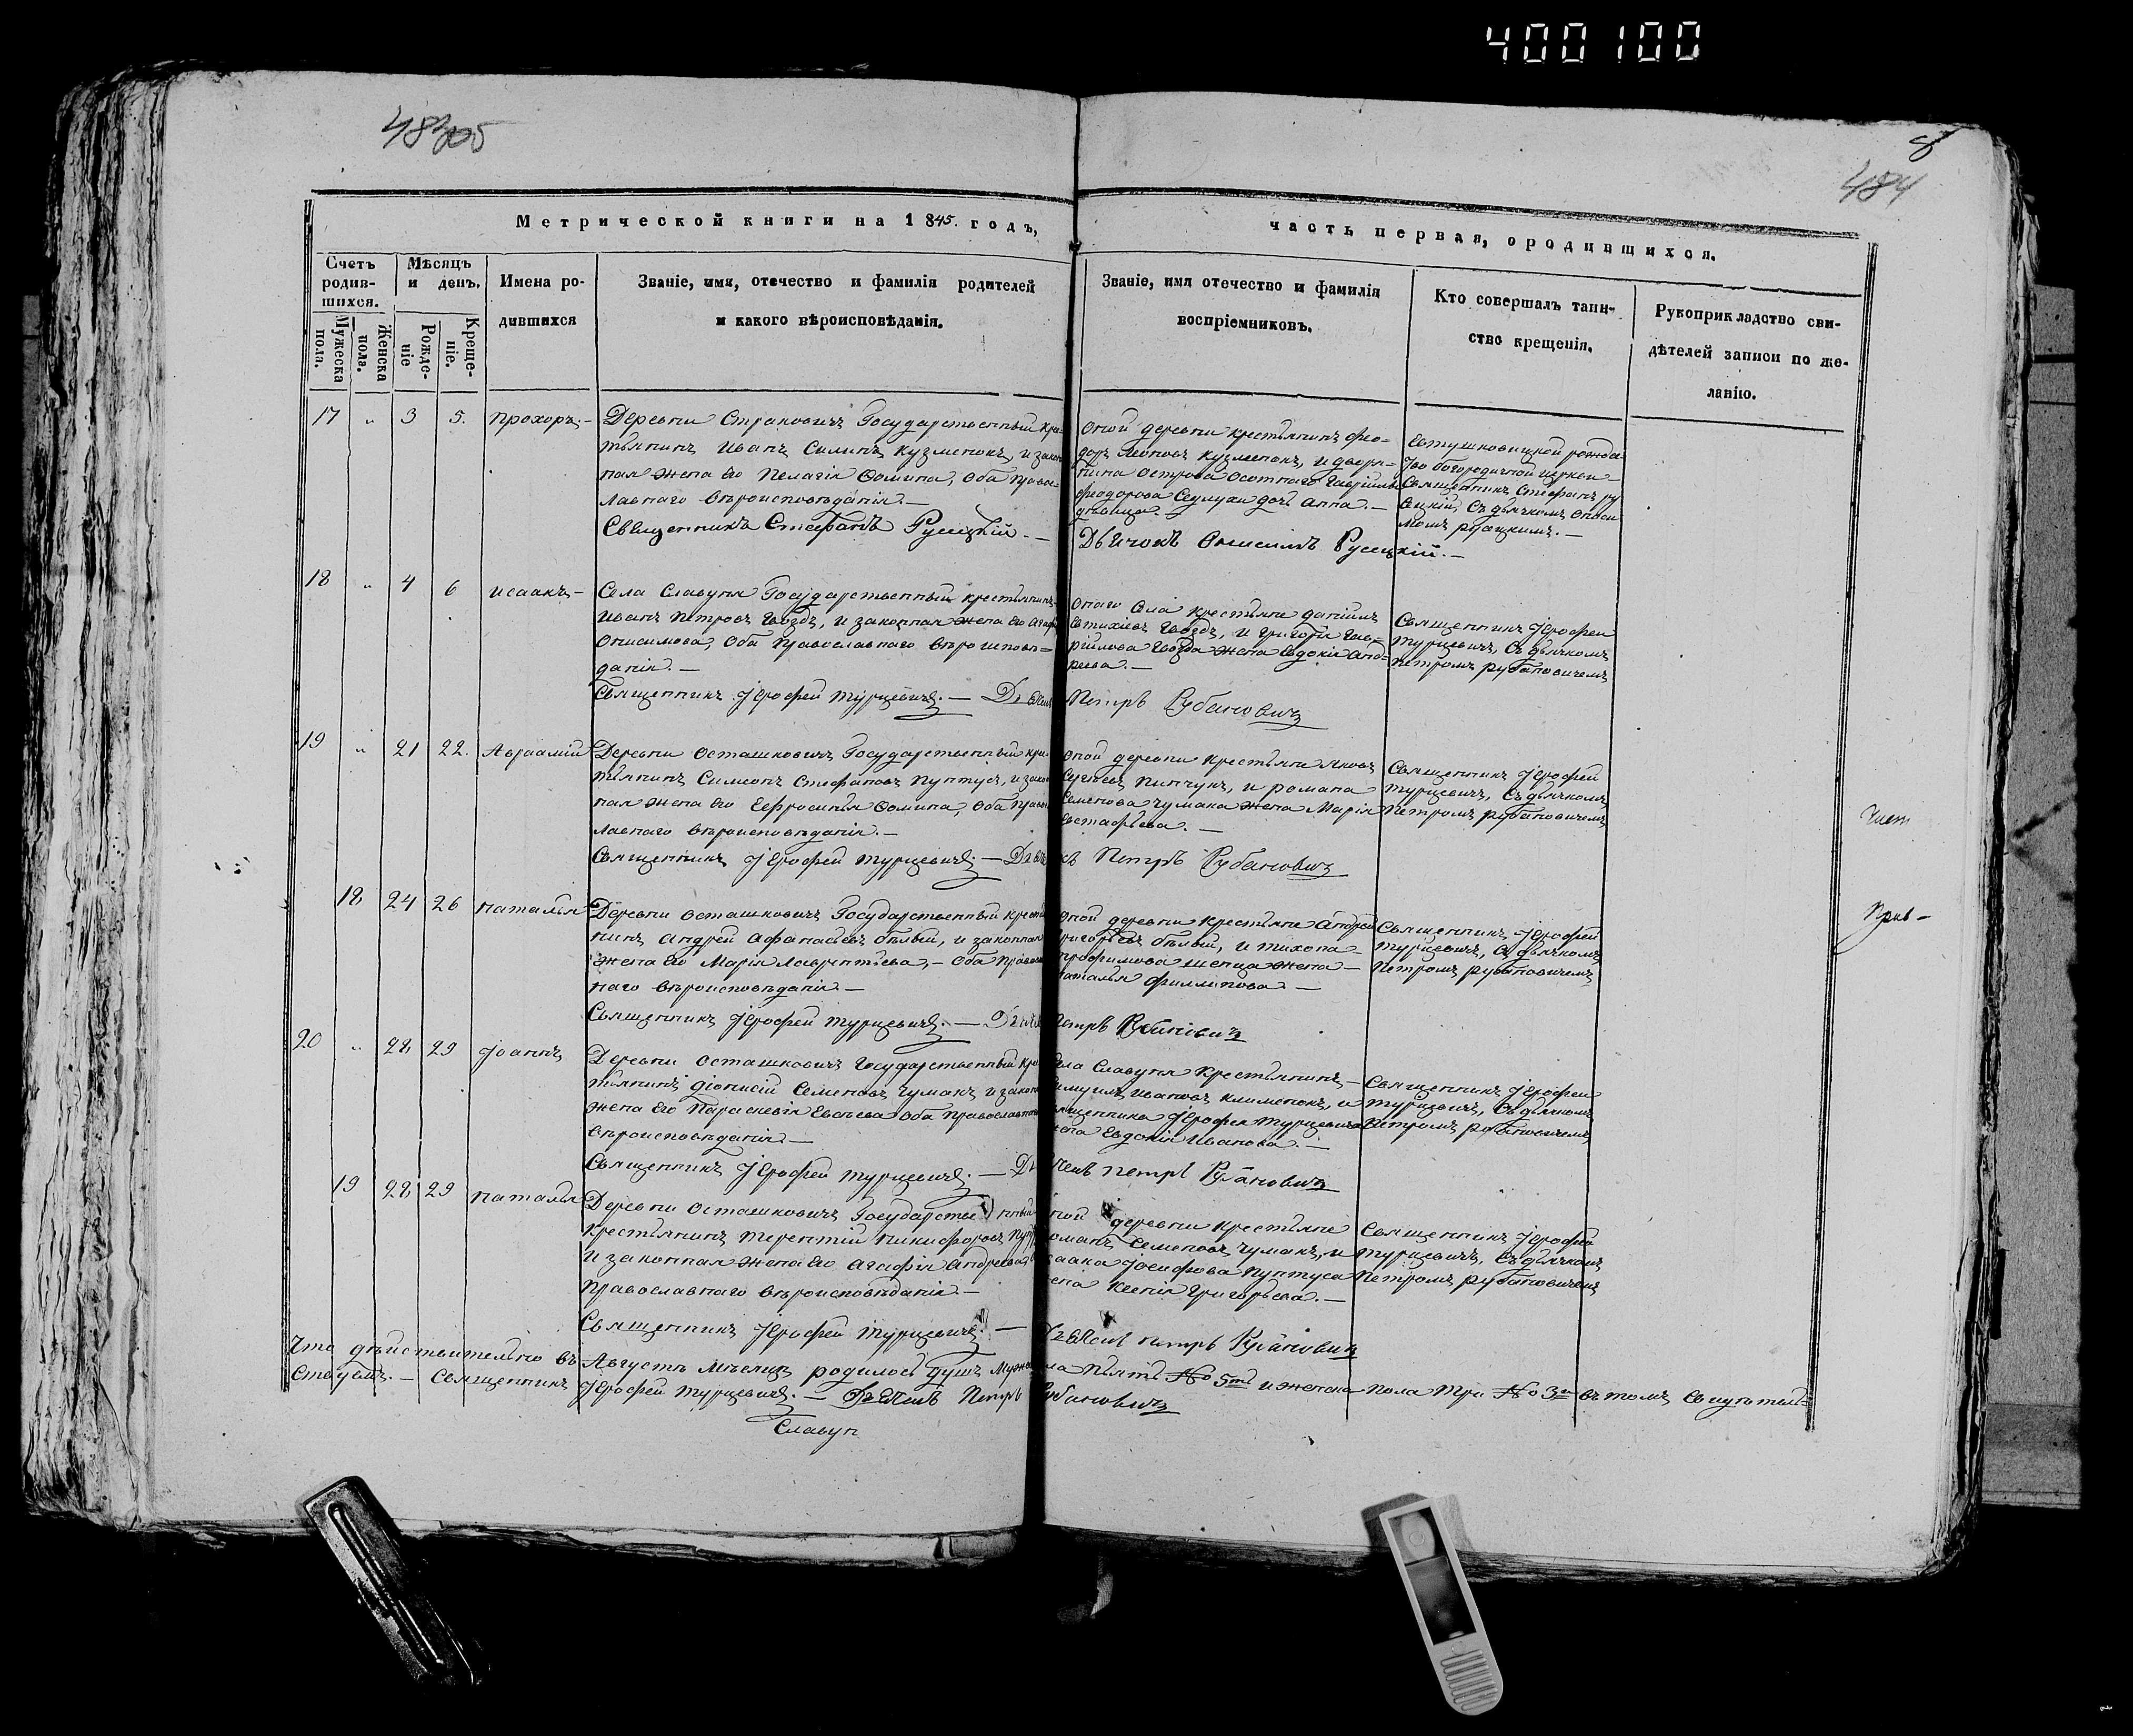 400100
8
484
Метрической книги на 1845. годъ,
часть первая, ородившихся.
Счетъ родив-
шихся.
Мужеска пола.
Женска пола.
Мѣсяцъ и день.
Рожде-
ніе
Креще-
ніе.
Имена ро-
дившихся
Званіе, имя, отечество и фамилія родителей
и какого вѣроисповѣданія.
Званіе, имя отечество и фамилія
воспріемниковъ.
Кто совершалъ таин-
ство крещенія.
Рукоприкладство сви-
дѣтелей записи по же-
ланію.
17 „ 3 5. Прохоръ.–
Деревни Страковичъ Государственный кре-
тьянинъ Иванъ Силинъ Кузменокъ, и закон
ная жена его Пелагія Ѳомина, оба правос-
лавнаго вѣроисповѣданія.–
Священникъ Стефанъ Русецкій.–
оной деревни крестьянинъ Фео-
доръ Леоновъ Кузменокъ, и дворя-
нина
Феодорова дочь Анна.–
дѣвица.–
Дьячокъ Онисимъ Русецкій.–
Евтушковицкой рожде
ство богородичной церкви
Священникъ Стефанъ Ру
сецкій, съ дьячкомъОниси
момъ Русецкимъ.–
18 „ 4 6 Исаакъ–
Села Славуня Государственный крестьянинъ
Иванъ Петровъ Гвоздь, и законная жена его Агафія
Онисимова, оба Православнаго вѣроисповѣ=
данія.–
Священникъ Іерофей Турцевичъ.– Дьячокъ Петръ Рубановичъ
онаго села крестьяне Даніилъ
Евтихіевъ Гвоздь, и Григорія Гав-
ріилова Гвоздя жена Евдокія Анд-
реева.–
Священникъ Іерофей
Турцевичъ, съ дьячкомъ
Петромъ Рубановичемъ
19 „ 21 22. Авраамій
Деревни Осташковичъ Государственный кре-
тьянинъ Симеонъ Стефановъ Пунтусъ, и закон
ная жена его Ефросинія Ѳомина, оба право
лавнаго вѣроисповѣданія.–
Священникъ Іерофей Турцевичъ.– Дьячокъ Петръ Рубановичъ
оной деревни крестьяне Яковъ
Сергѣевъ Пинчукъ, и Романа
Семенова Чумака жена Марія
Евстафьева.–
Священникъ Іерофей
Турцевичъ, съ дьячкомъ
Петромъ Рубановичемъ
18 24 26 Наталья
Деревни Осташковичъ Государственный кресть
нинъ Андрей Афанасьевъ Бѣлый, и законная
жена его Марія Лаврентіева,– оба Правос
наго вѣроисповѣданія.–
Священникъ Іерофей Турцевичъ.– Петръ Рубановичъ
оной деревни крестьяне Андрей
Григорьевъ Бѣлый, и Тихона
Трофимова жена–
Наталья Филипова.–
Священникъ Іерофей
Турцевичъ, съ дьячкомъ
Петромъ Рубановичемъ
20 „ 28 29 Іоаннъ
Деревни Осташковичъ Государственный кре
тьянинъ Діонисій Семеновъ Чумакъ и закон
жена его Параскевія Евсѣева оба Православнаго
вѣроисповѣданія–
Священникъ Іерофей Турцевичъ.– Петръ Рубановичъ
Села Славуня Крестьянинъ–
Самуилъ Ивановъ Клименокъ, и
священника Іерофея Турцевича
жена Евдокія Иванова.–
Священникъ Іерофей
Турцевичъ, съ дьячкомъ
Петромъ Рубановичемъ
19 28 29 Наталья
Деревни Осташковичъ Государственный
крестьянинъ Терентій Никифоровъ
и законная жена его Агафія Андреева
Православнаго вѣроисповѣданія.–
Священникъ Іерофей Турцевичъ.– Дьячокъ Петръ Рубановичъ
оной деревни крестьяне
Романъ Семеновъ Чумакъ, и
Исаака Іосифова Пунтуса
жена Ксенія Григорьева.–
Священникъ Іерофей
Турцевичъ, съ дьячкомъ
Петромъ Рубановичемъ
Что дѣйствительно въ Августѣ мѣсяцѣ родилось душъ мужеска пола пять № 5ть и женска пола три № 3и въ томъ свидѣтель=
ствуемъ.– Священникъ Іерофей Турцевичъ.– Дьячокъ Петръ Рубановичъ
Славун